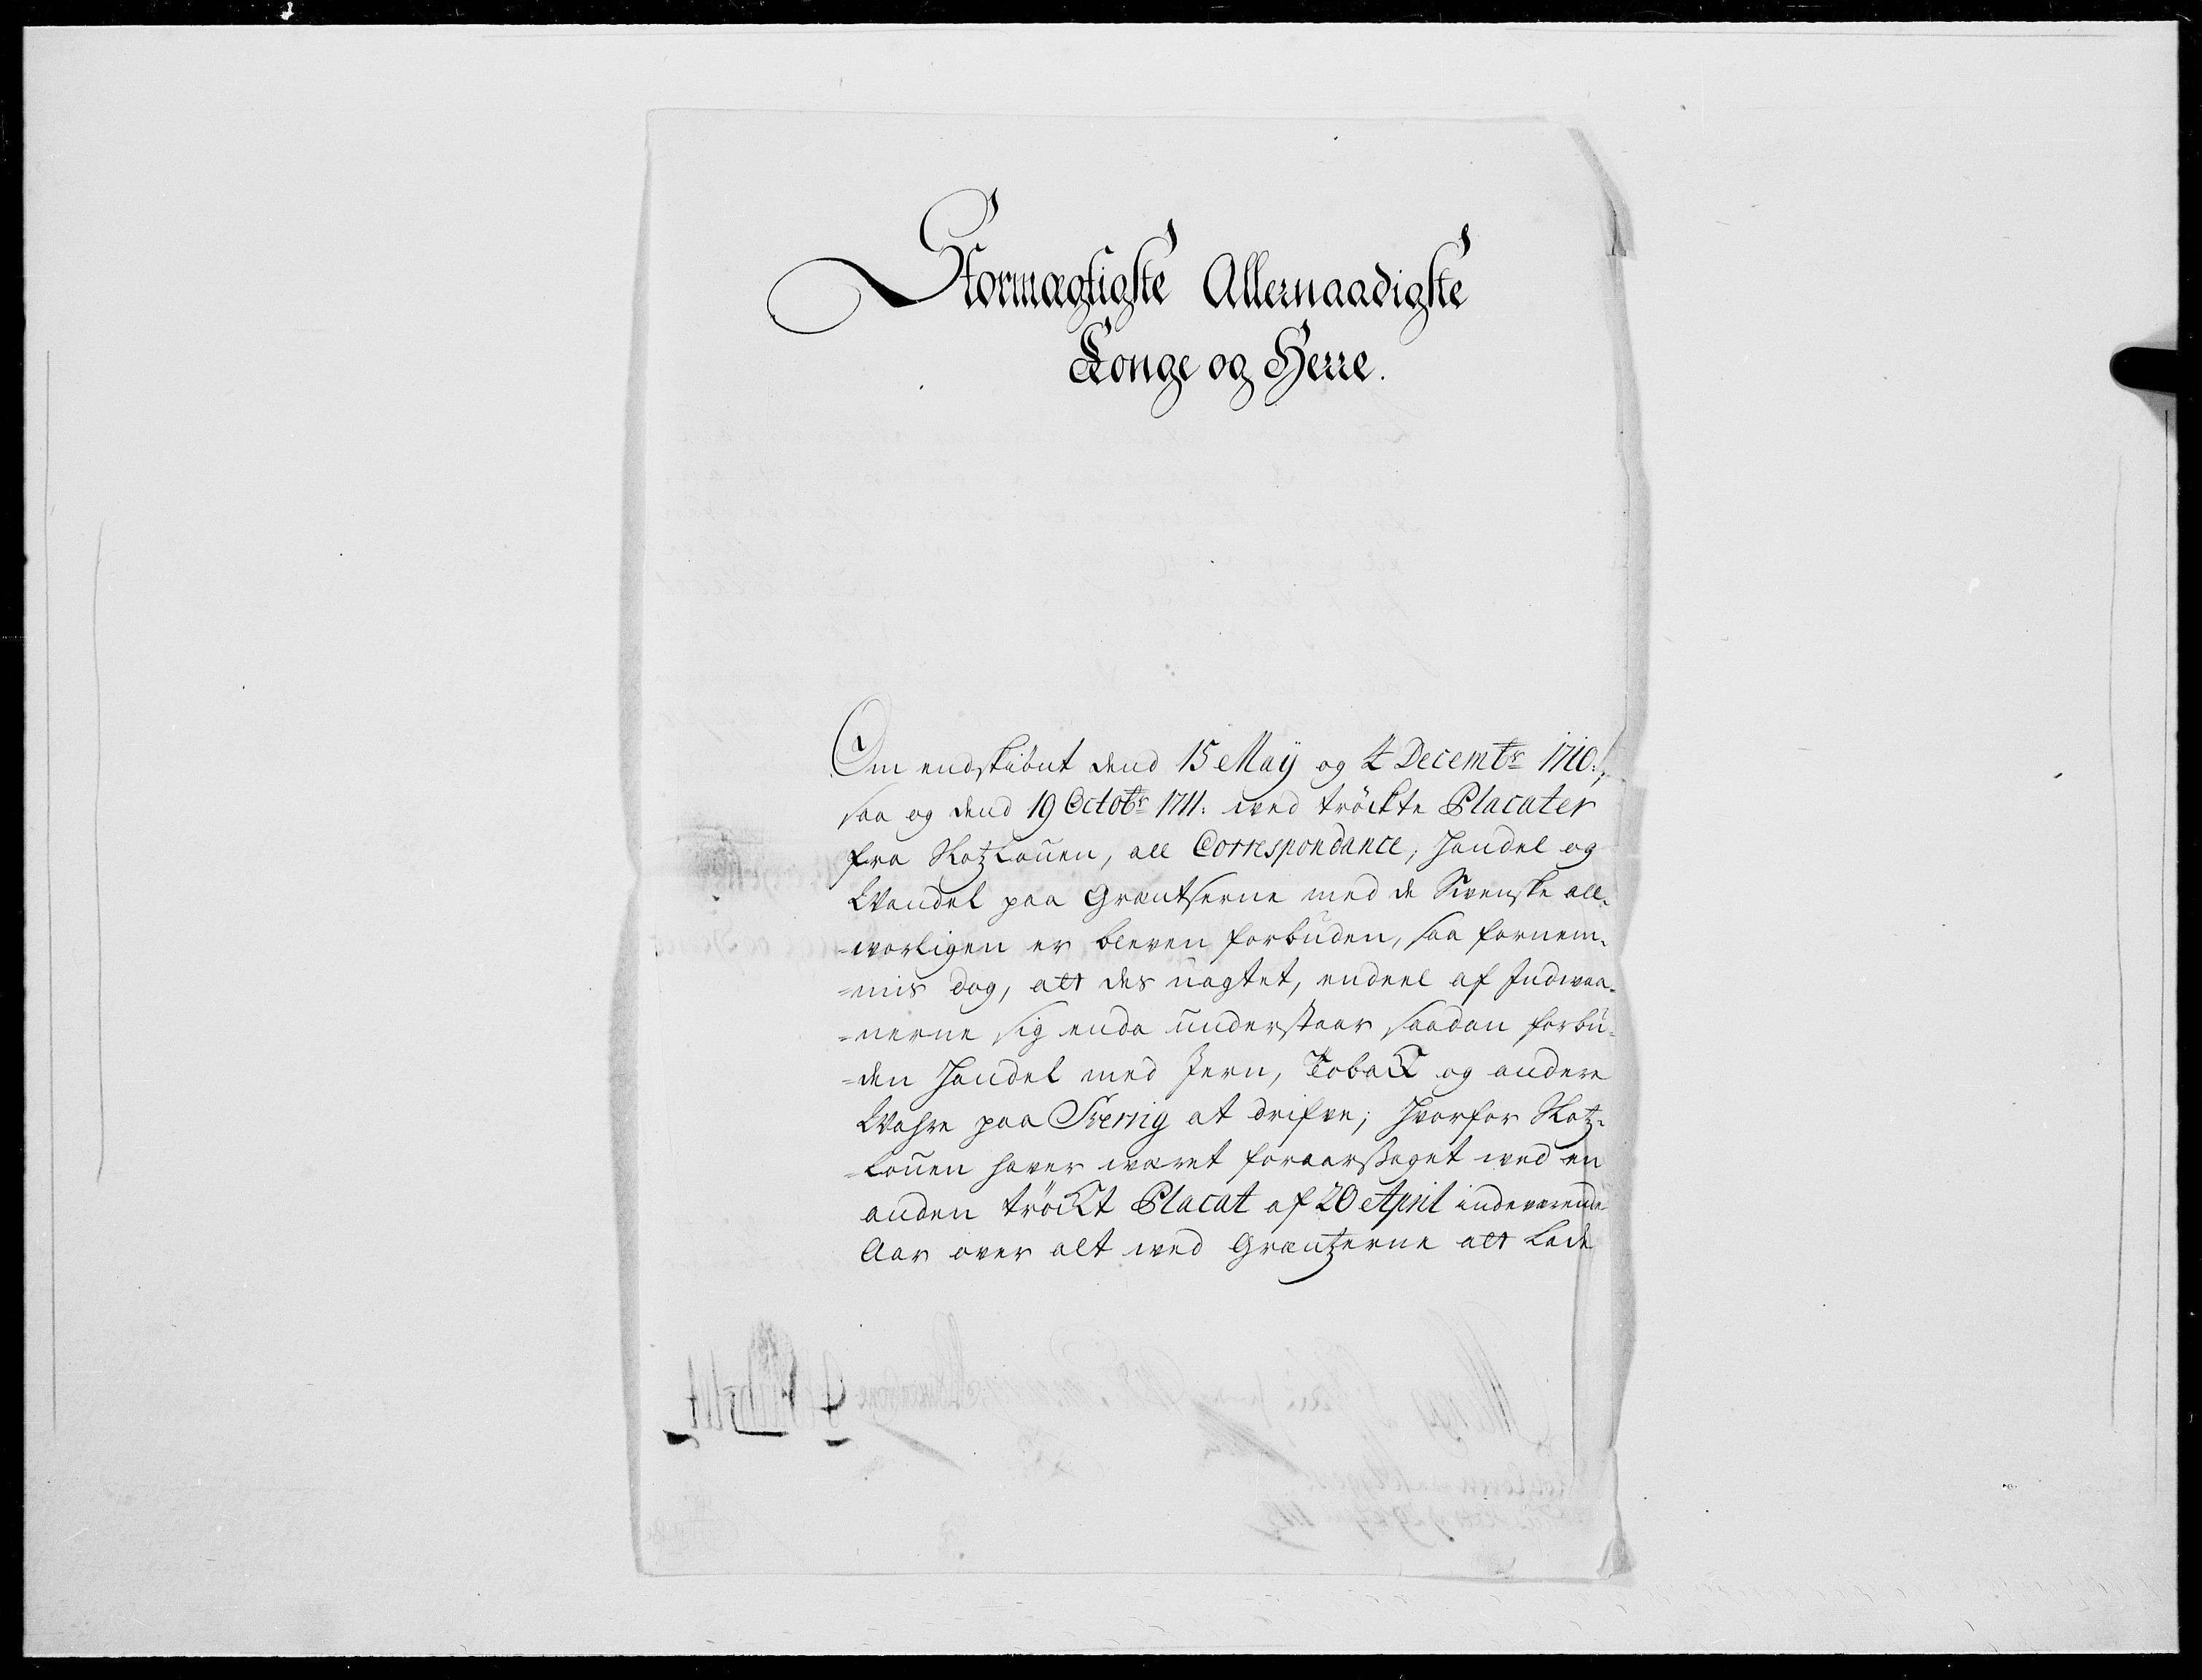 Stormægtigste Allernaadigste
Konge og Herre.
Om endskiönt dend 15 Maÿ og 4 Decembr 1710:,
saa og dend 19 Octobr 1711: wed tröckte Placater
fra Slotzlouen, all Correspondance, Handel og
Wandel paa Grentserne med de Svenske all-
=worligen er bleven forbuden, saa fornem-
=mis dog, att des uagtet, endeel af Indwaa-
=nerne sig enda understaar saadan forbu-
=den Handel med Jern, Toback og andere
Wahre paa Sverrig at drifve; hvorfor Slotz-
=louen haver wæret foraarsaget wed en
anden tröckt Placat af 20 April indeværende
Aar over alt wed Græntzerne att lade